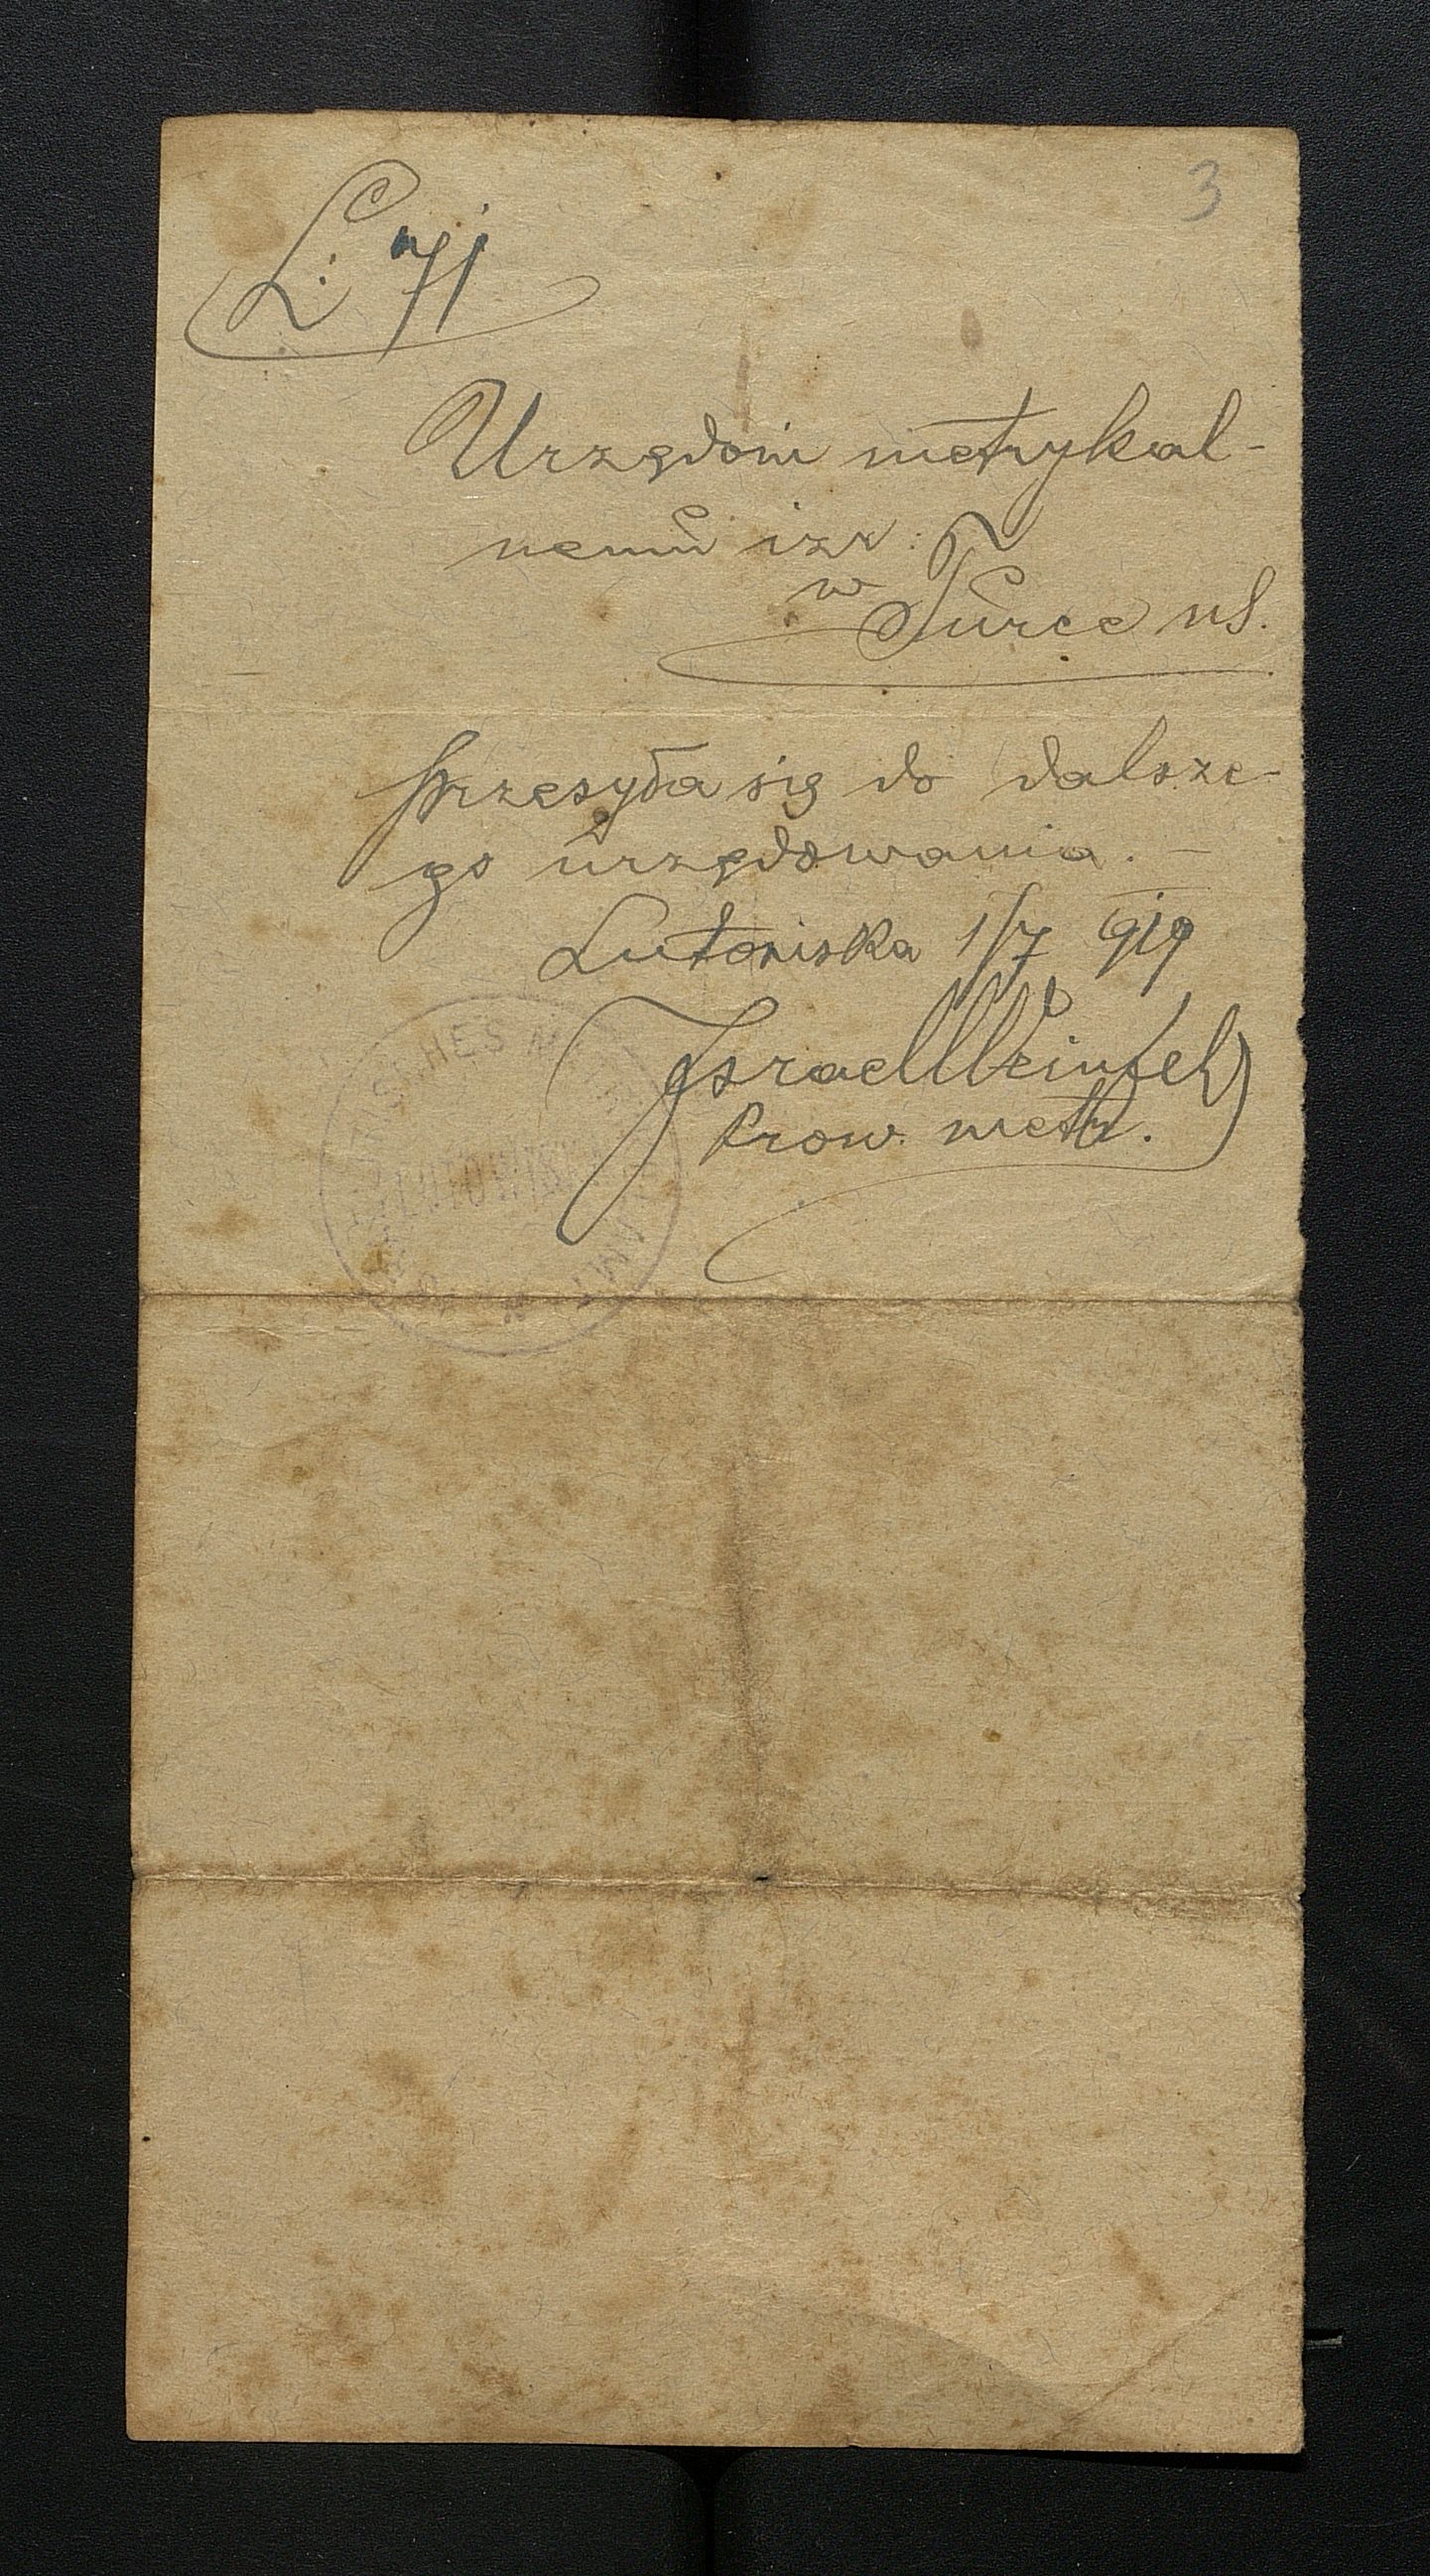 3
L: 71
Urzędowi metrykal-
nemu izr:
w Turce nS.
przesyła się do dalsze-
go urzędowania. —
Lutowiska 1/7 919
Israel Weinfeld
Prow. metr.
LUTOWISKA